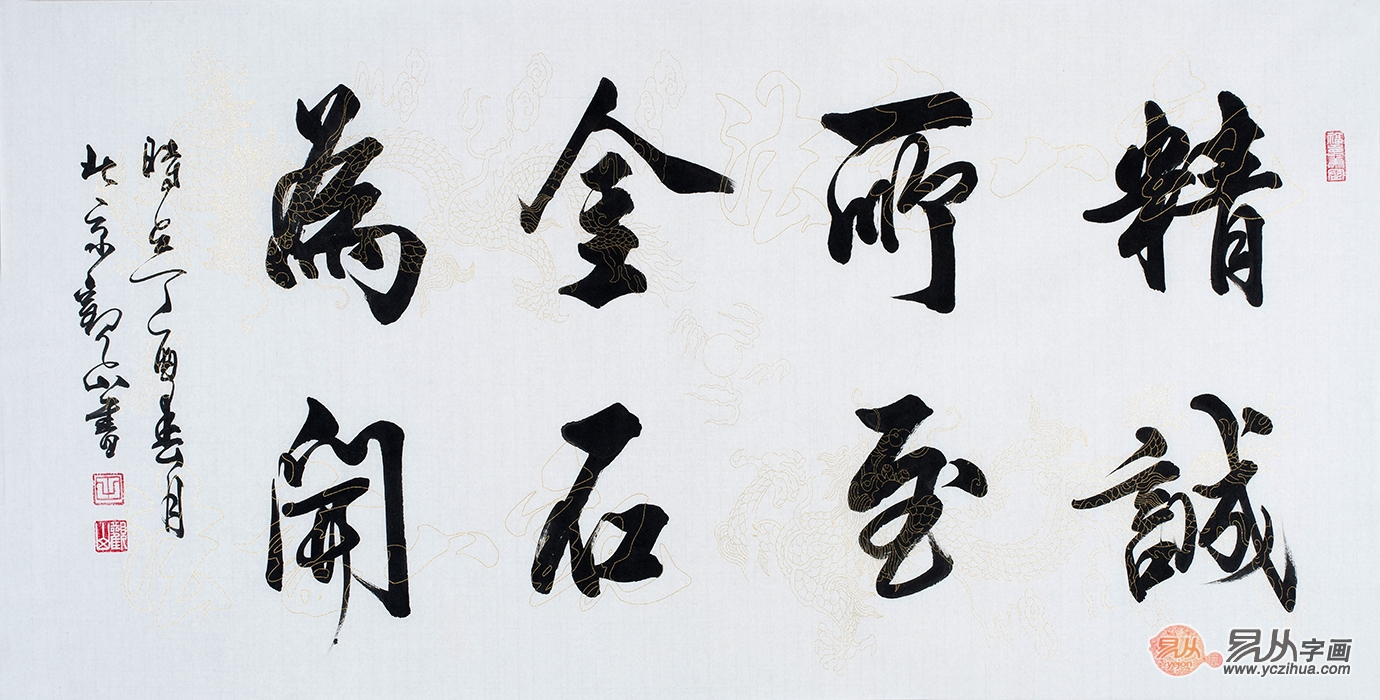 精誠
所至
金石
為開
時在丁酉春月
北京觀山書
易从
yejon
易从字画
www.yczihua.com